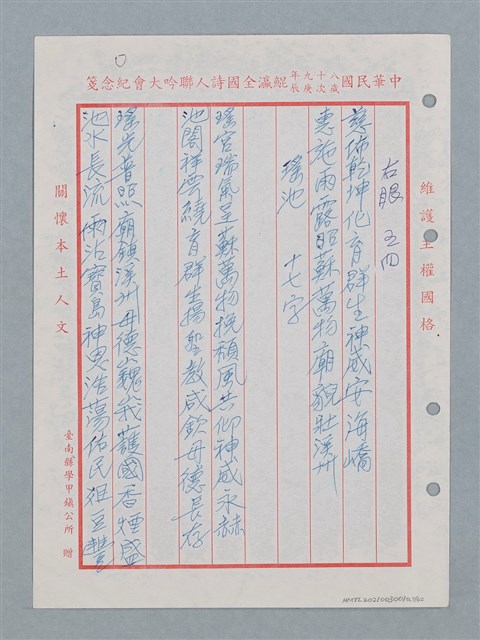 中華民國八十九年歲次庚辰鯤瀛全國詩人聯吟大會紀念箋
維護主權國格
右眼 五四
慈佈乾坤化育群生神威安海嶠
惠施雨露昭蘇萬物廟貌壯溪州
瑤池 十七字
瑤宮瑞氣呈蘇萬物挽頹風共仰神威永赫
池閣祥雲繞育群生揚聖教咸欽母德長存
瑤光普照廟鎮溪州母德巍峨護國香煙盛
池水長流雨沾寶島神恩浩蕩佑民俎豆豐
關懷本土人文
臺南縣學甲鎮公所 贈